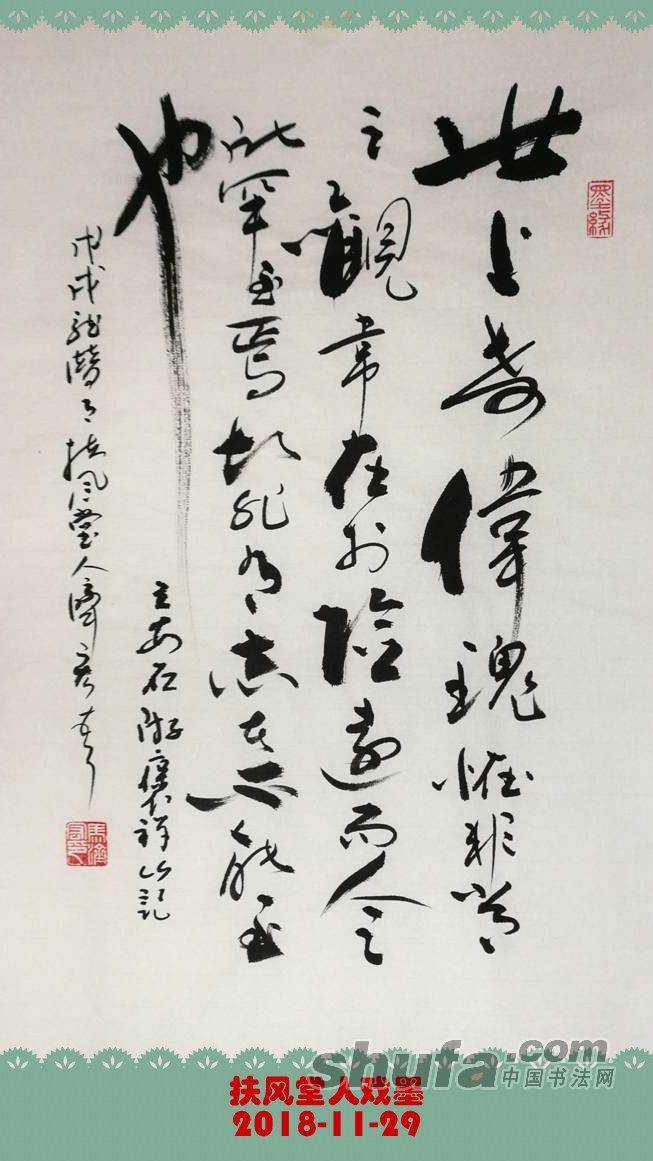 墨缘
世上奇偉瑰怪非常
之觀常在於險遠而人之
所罕至焉故非有志者不能至
也
王安石游褒禪山記
戊戌龍潛月扶風堂人濟
shufa.com
中国书法网
扶风堂人戏墨
2018-11-29